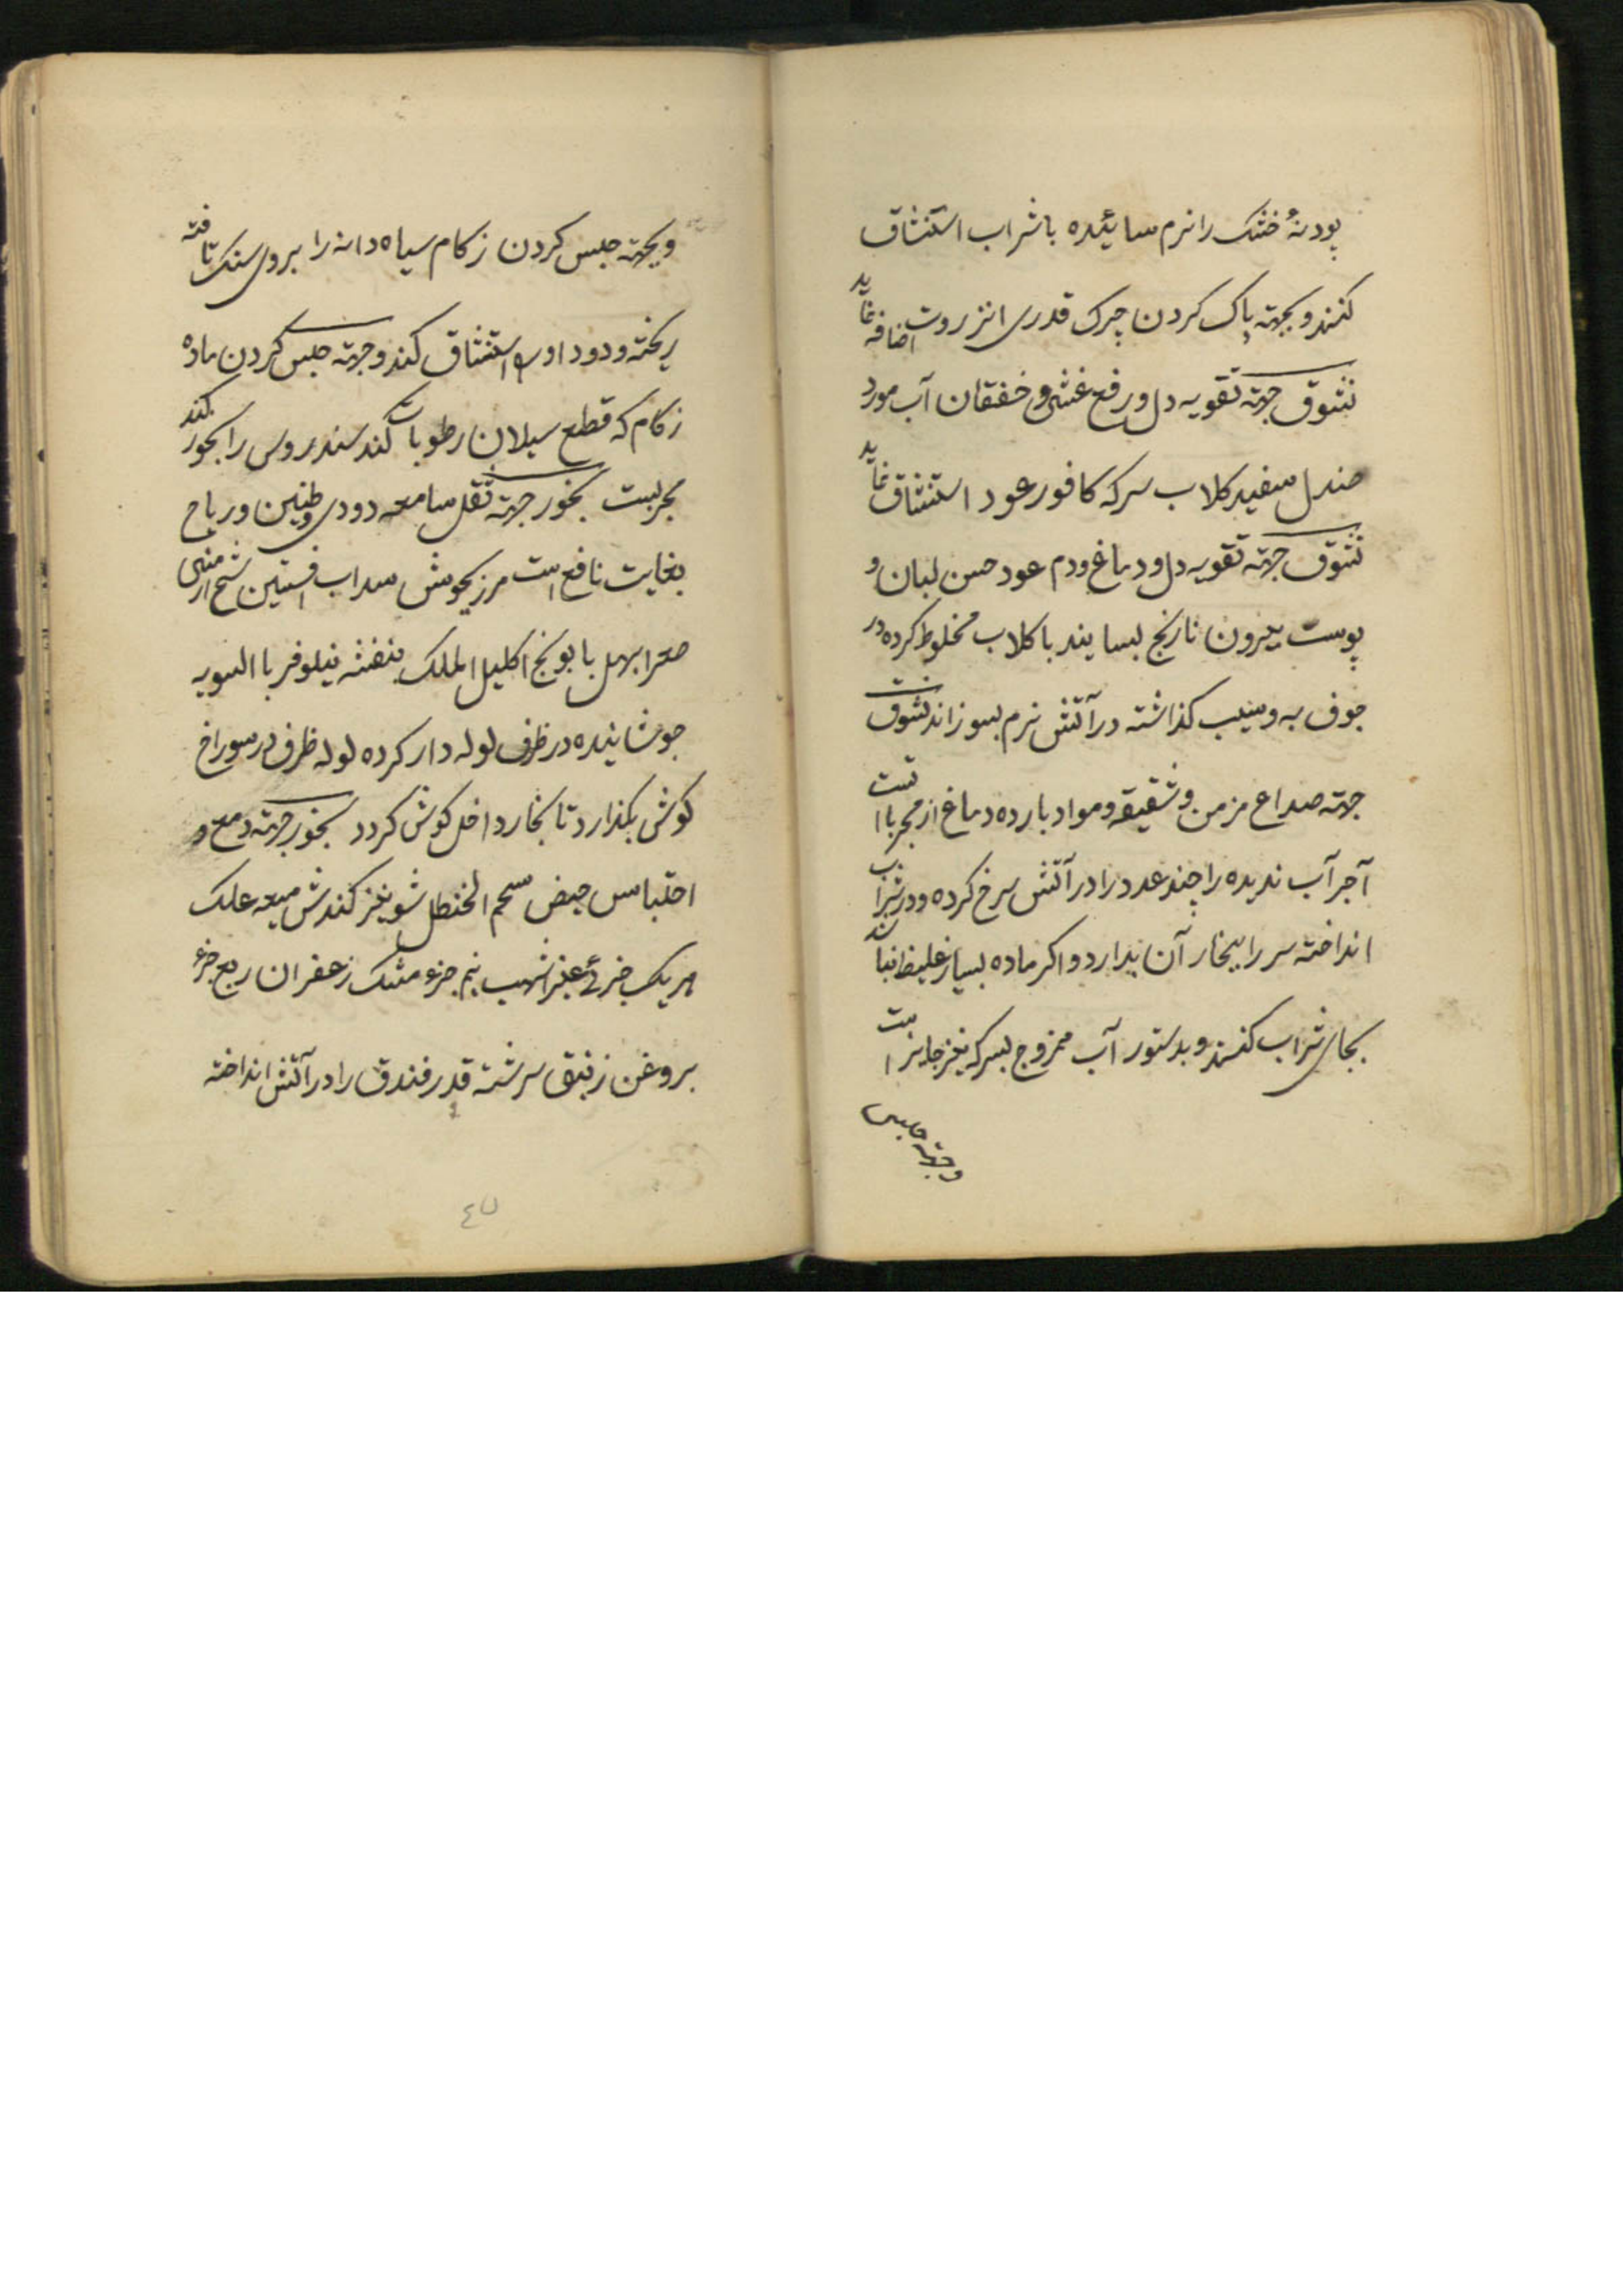 پودنهٔ خشک را نرم سائیده با شراب استنشاق
کنند و بجهته پاک کردن چرک قدری انزروت اضافه نماید
نشوق جهته تقویه دل و رفع غشی و خفقان آب مورد
صندل سفید کلاب سرکه کافور عود استنشاق نماید
نشوق جهته تقویه دل و دماغ ودم عود حسن لبان و
پوست بیرون نارنج بسایند با کلاب مخلوط کرده در
جوف به و سیب کذاشته در آتش نرم بسوزانند نشوق
جهته صداع مزمن و شقیقه و مواد بارده دماغ از مجرباتست
آجر آب ندیده را چند عدد را در آتش سرخ کرده و در شراب
انداخته سر را ببخار آن بدارد و اکر ماده بسیار غلیظ نباشد
بجای شراب کنند و بدستور آب ممزوج بسرکه نیز جایز است
وجهته حبس
وبجهته حبس کردن زکام سیاه دانه را بروی سنک تافته
ریخته و دود او را استنشاق کند وجهته حبس کردن ماده
زکام که قطع سیلان رطوبات کند سندروس را بخور کند
مجربست بخور جهته ثقل سامعه دودی وطنین و ریاح
بغایت نافع است مرزنجوش سداب افسنتین شیح ارمنی
صعتر ابهل بابونج اکلیل الملک بنفشه نیلوفر با السویه
جوشانیده در ظرف لوله دار کرده لوله ظرف در سوراخ
کوش بکذارد تا بخار داخل کوش کردد بخور جهته دمعه و
احتباس حیض سحم الحنظل شونیز کندش میعه علک
هریک جزئ عنبر اشهب نیم جزء مشک زعفران ربع جزء
بروغن زنبق سرشته قدر فندق را در آتش انداخته
٤٧